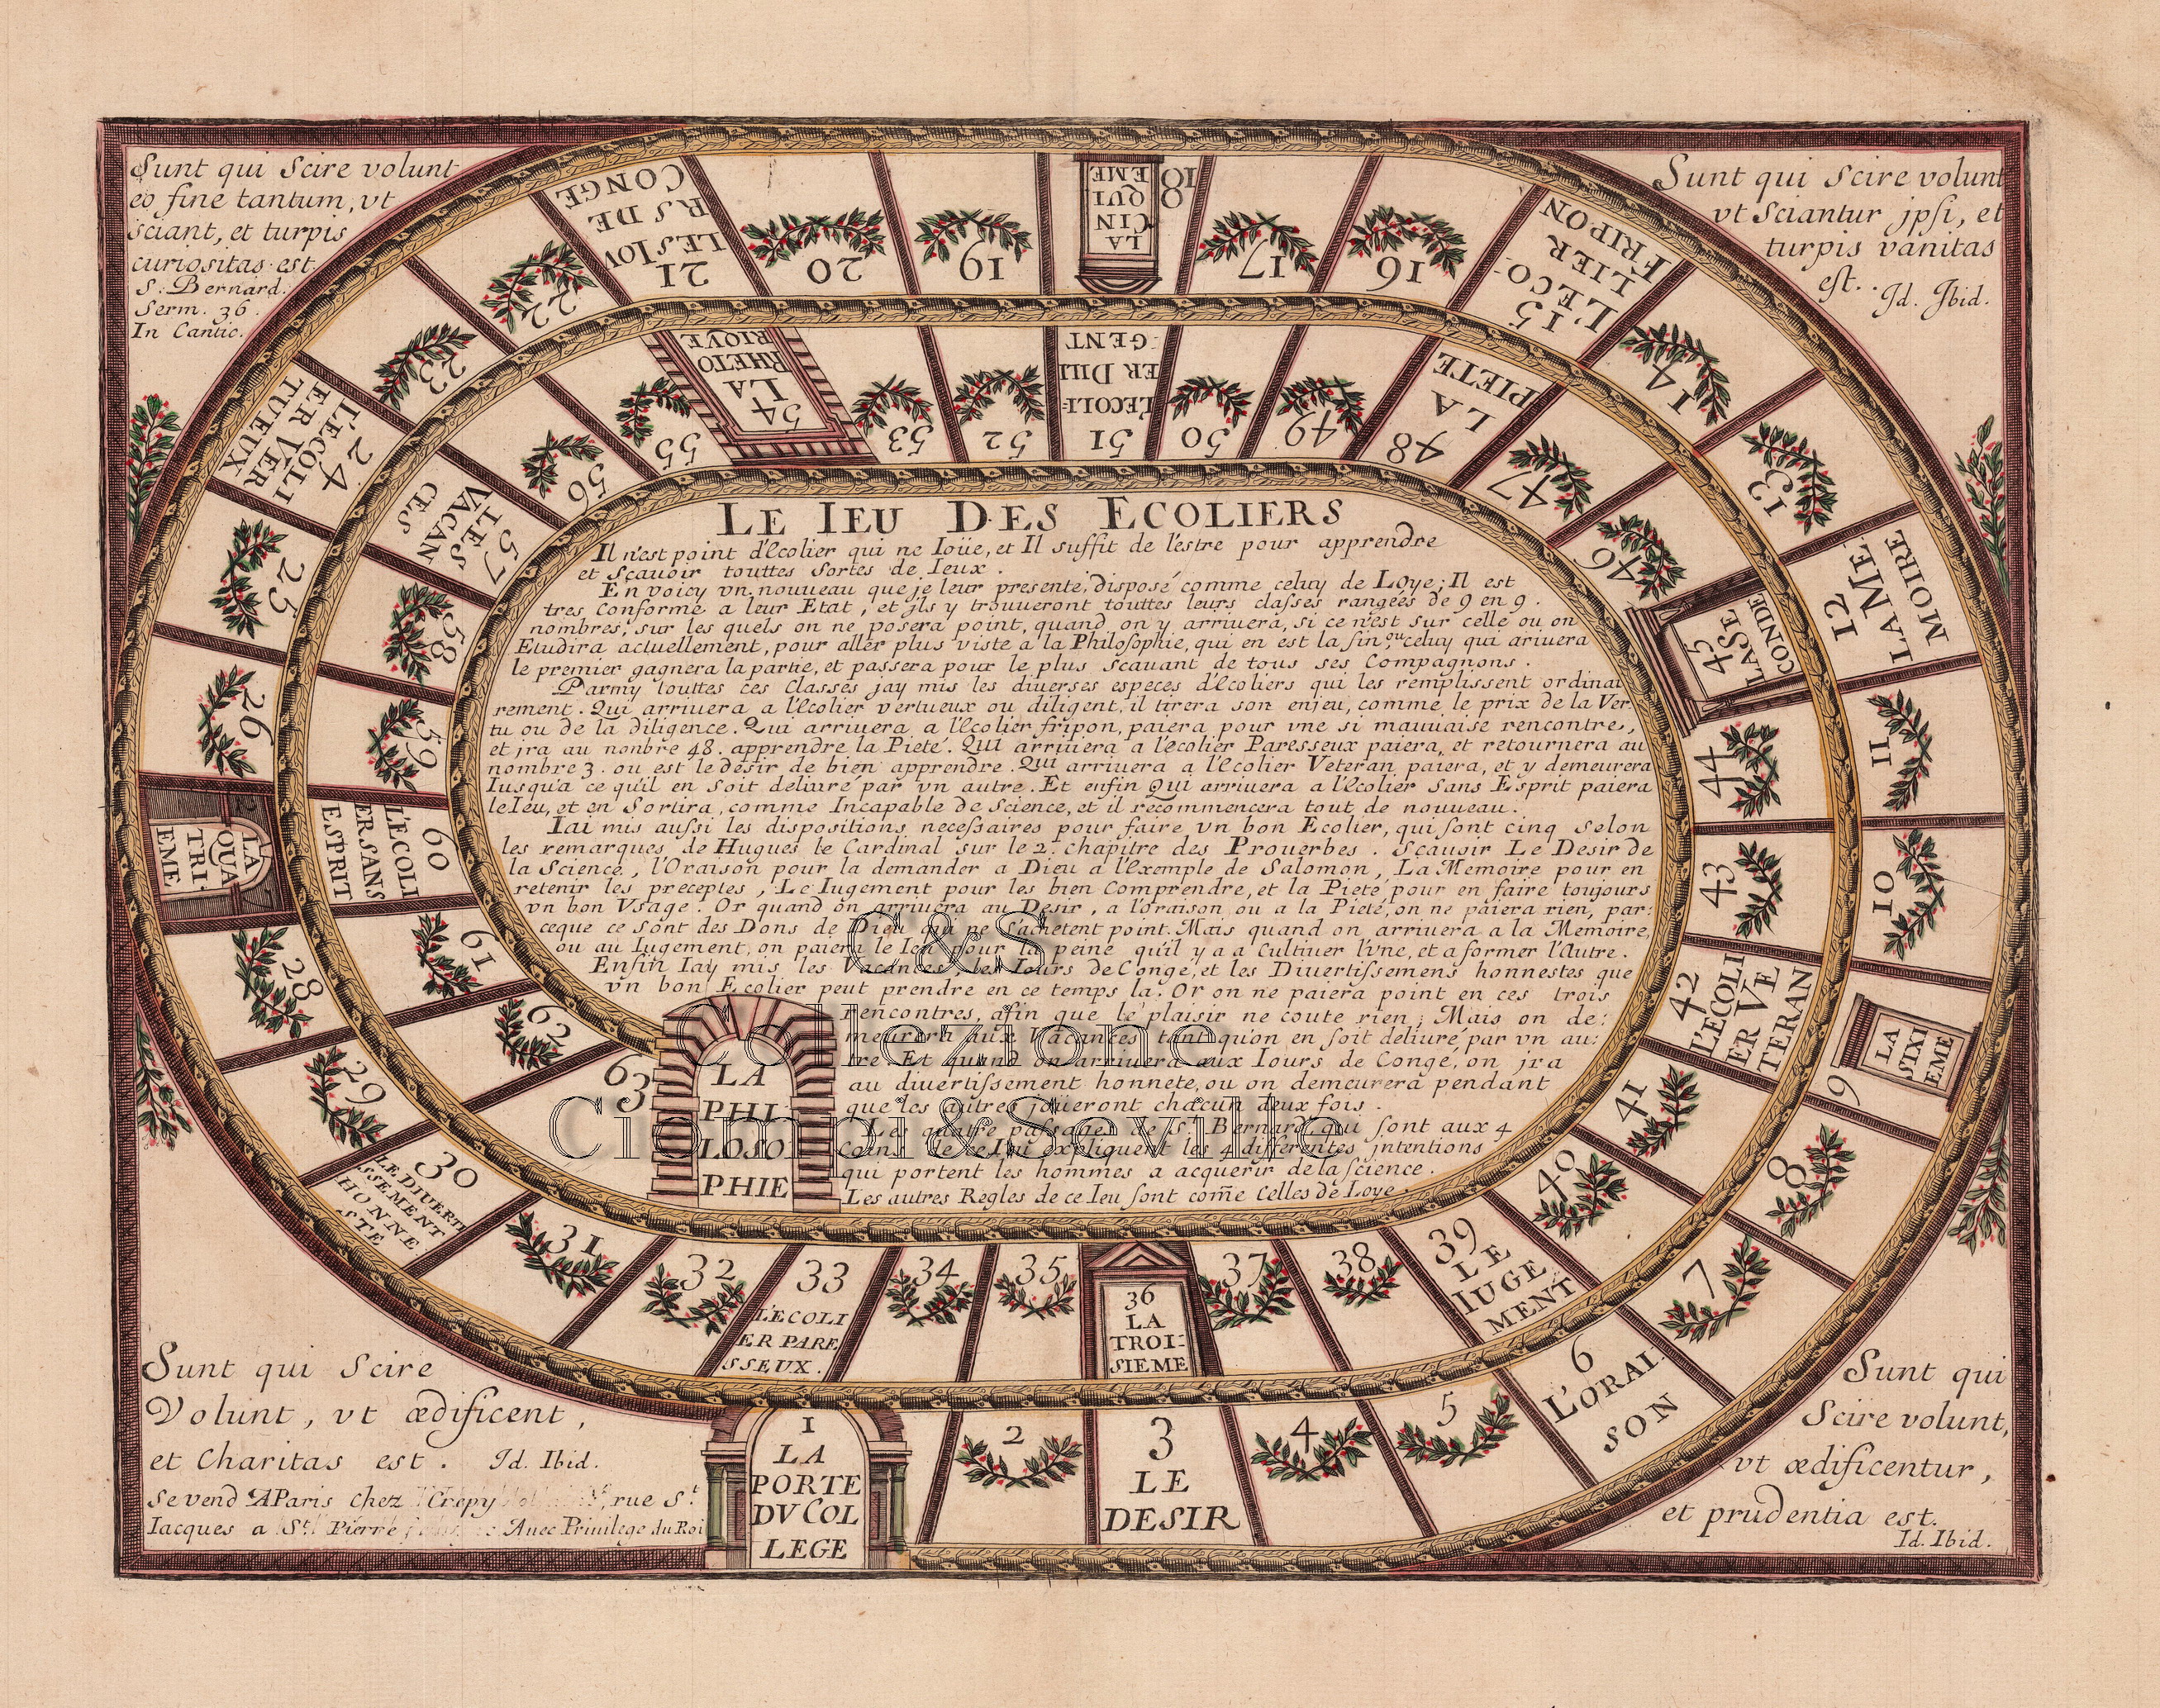 Sunt qui Scire volunt
eo fine tantum, vt
sciant, et turpis
curiositas est.
S. Bernard.
Serm. 36.
In Cantic.
Sunt qui Scire volunt
vt Sciantur jpsi, et
turpis vanitas
est. Id. Ibid.
1
LA
PORTE
DV COL
LEGE
2
3
LE
DESIR
4
5
6
L'ORAI-
SON
7
8
9
LA
SIXI
EME
10
11
12
LA ME-
MOIRE
13
14
15
L'ECO-
LIER
FRIPON
16
17
18
LA
CIN
QUI
EME
19
20
21
LES IOV
RS DE
CONGE
22
23
24
L'ECOLI
ER VER
TVEUX
25
26
LA
QUA
TRI-
EME
28
29
30
LE DIVERTI
SSEMENT
HONNE
STE
31
32
33
L'ECOLI
ER PARE
SSEUX.
34
35
36
LA
TROI-
SIEME
37
38
39
LE
IUGE
MENT
40
41
42
L'ECOLI
ER VE
TERAN
43
44
45
LA SE
CONDE
46
47
48
LA
PIETE
49
50
51
L'ECOLI-
ER DILI
GENT
52
53
54
LA
RHETO
RIQUE
55
56
57
LES
VACAN
CES
58
59
60
L'ECOLI
ER SANS
ESPRIT
61
62
63
LA
PHI-
LOSO
PHIE
LE IEU DES ECOLIERS
Il n'est point d'ecolier qui ne Ioüe, et Il suffit de l'estre pour apprendre
et Sçauoir touttes Sortes de Ieux.
En voicy vn nouueau que je leur presente, disposé comme celuy de Loye; Il est
tres Conforme a leur Etat, et jls y trouueront touttes leurs classes rangées de 9 en 9.
nombres, sur les quels on ne posera point, quand on y arriuera, si ce n'est sur celle ou on
Etudira actuellement, pour aller plus viste a la Philosophie, qui en est la fin, ou celuy qui ariuera
le premier gagnera la partie, et passera pour le plus Scauant de tous ses Compagnons.
Parmy touttes ces Classes jay mis les diuerses especes d'Ecoliers qui les remplissent ordinai
rement. Qui arriuera a l'Ecolier vertueux ou diligent, il tirera son enjeu, comme le prix de la Ver-
tu ou de la diligence. Qui arriuera a l'Ecolier fripon, paiera pour vne si mauuaise rencontre,
et jra au nonbre 48. apprendre la Pieté. Qui arriuera a l'ecolier Paresseux paiera, et retournera au
nombre 3. ou est le desir de bien apprendre. Qui arriuera a l'Ecolier Veteran paiera, et y demeurera
Iusqu'a ce qu'il en Soit deliuré par vn autre. Et enfin Qui arriuera a l'Ecolier Sans Esprit paiera
le Ieu, et en Sortira, comme Incapable de Science, et il recommencera tout de nouueau.
Iai mis aussi les dispositions necessaires pour faire vn bon Ecolier, qui sont cinq selon
les remarques de Hugues le Cardinal sur le 2e chapitre des Prouerbes. Scauoir Le Desir de
la Science, l'Oraison pour la demander a Dieu a l'Exemple de Salomon, La Memoire pour en
retenir les preceptes, Le Iugement pour les bien Comprendre, et la Pieté pour en faire toujours
vn bon Vsage. Or quand on arriuera au Desir, a l'oraison ou a la Pieté, on ne paiera rien, par-
ceque ce sont des Dons de Dieu qui ne S'achetent point. Mais quand on arriuera a la Memoire,
ou au Iugement, on paiera le Ieu pour la peine qu'il y a a Cultiuer l'vne, et a former l'Autre.
Enfin Iay mis les Vacances, les Iours de Conge, et les Diuertissemens honnestes que
vn bon Ecolier peut prendre en ce temps la. Or on ne paiera point en ces trois
rencontres, afin que le plaisir ne coute rien; Mais on de-
meurera aux Vacances tant qu'on en soit deliuré par vn au-
tre. Et quand on arriuera aux Iours de Congé, on jra
au diuertissement honnete, ou on demeurera pendant
que les autres joüeront chacun deux fois.
Les quatre passages de S. Bernard qui font aux 4
Coins de ce Ieu expliquent les 4 differentes jntentions
qui portent les hommes a acquerir de la science.
Les autres Regles de ce Ieu sont come Celles de Loye
C&S
Collezione
Ciompi&Seville
Sunt qui Scire
Volunt, vt ædificent,
et Charitas est. Id. Ibid.
Se vend A Paris chez Crepy rue St.
Iacques a St. Pierre Auec Priuilege du Roi
Sunt qui
Scire volunt,
vt ædificentur,
et prudentia est.
Id. Ibid.